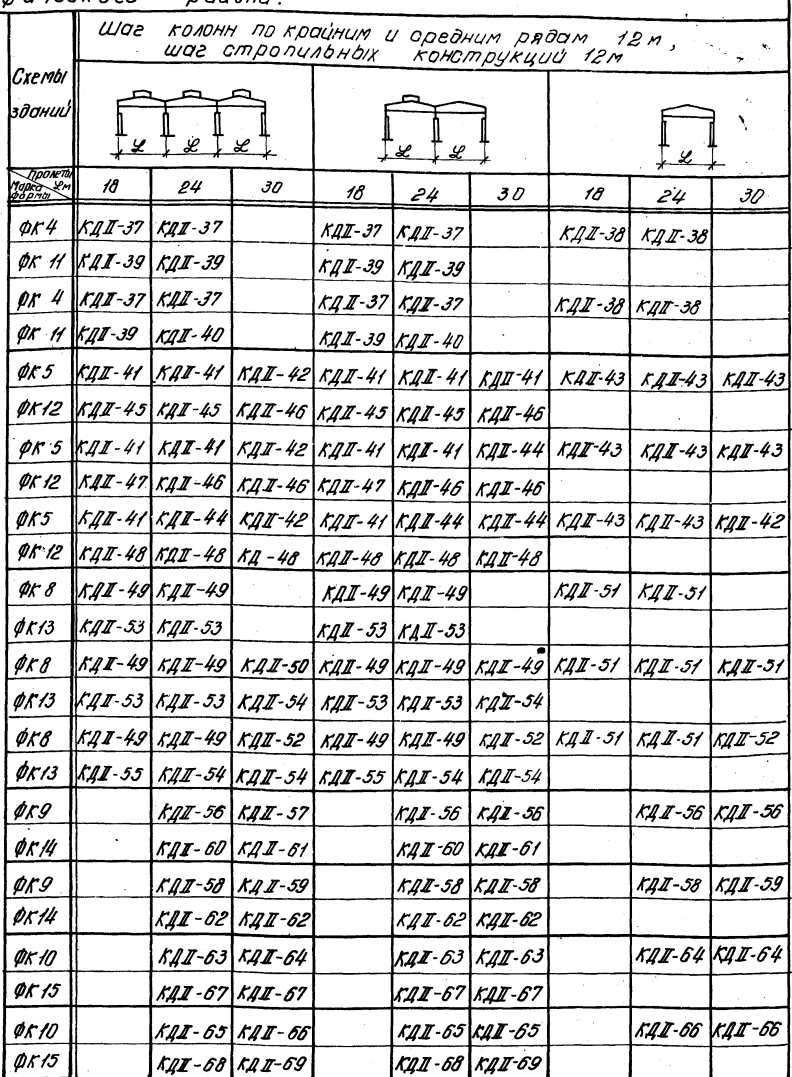 района.
Шаг колонн по крайним и средним рядам 12м,
шаг стропильных конструкций 12м
Схемы
зданий
L L L L L L
Пролеты Lм
Марка формы 18 24 30 18 24 30 18 24 30
ФК4 КДII-37 КДII-37 КДII-37 КДII-37 КДII-38 КДII-38
ФК 11 КДII-39 КДII-39 КДII-39 КДII-39
ФК 4 КДII-37 КДII-37 КДII-37 КДII-37 КДII-38 КДII-38
ФК 11 КДII-39 КДII-40 КДII-39 КДII-40
ФК5 КДII-41 КДII-41 КДII-42 КДII-41 КДII-41 КДII-41 КДII-43 КДII-43 КДII-43
ФК12 КДII-45 КДII-45 КДII-46 КДII-45 КДII-45 КДII-46
ФК 5 КДII-41 КДII-41 КДII-42 КДII-41 КДII-41 КДII-44 КДII-43 КДII-43 КДII-43
ФК12 КДII-47 КДII-46 КДII-46 КДII-47 КДII-46 КДII-46
ФК5 КДII-41 КДII-44 КДII-42 КДII-41 КДII-44 КДII-44 КДII-43 КДII-43 КДII-42
ФК 12 КДII-48 КДII-48 КД-48 КДII-48 КДII-48 КДII-48
ФК 8 КДII-49 КДII-49 КДII-49 КДII-49 КДII-51 КДII-51
ФК13 КДII-53 КДII-53 КДII-53 КДII-53
ФК8 КДII-49 КДII-49 КДII-50 КДII-49 КДII-49 КДII-49 КДII-51 КДII-51 КДII-51
ФК13 КДII-53 КДII-53 КДII-54 КДII-53 КДII-53 КДII-54
ФК8 КДII-49 КДII-49 КДII-52 КДII-49 КДII-49 КДII-52 КДII-51 КДII-51 КДII-52
ФК13 КДII-55 КДII-54 КДII-54 КДII-55 КДII-54 КДII-54
ФК9 КДII-56 КДII-57 КДII-56 КДII-56 КДII-56 КДII-56
ФК14 КДII-60 КДII-61 КДII-60 КДII-61
ФК9 КДII-58 КДII-59 КДII-58 КДII-58 КДII-58 КДII-59
ФК14 КДII-62 КДII-62 КДII-62 КДII-62
ФК10 КДII-63 КДII-64 КДII-63 КДII-63 КДII-64 КДII-64
ФК15 КДII-67 КДII-67 КДII-67 КДII-67
ФК10 КДII-65 КДII-66 КДII-65 КДII-65 КДII-66 КДII-66
ФК15 КДII-68 КДII-69 КДII-68 КДII-69